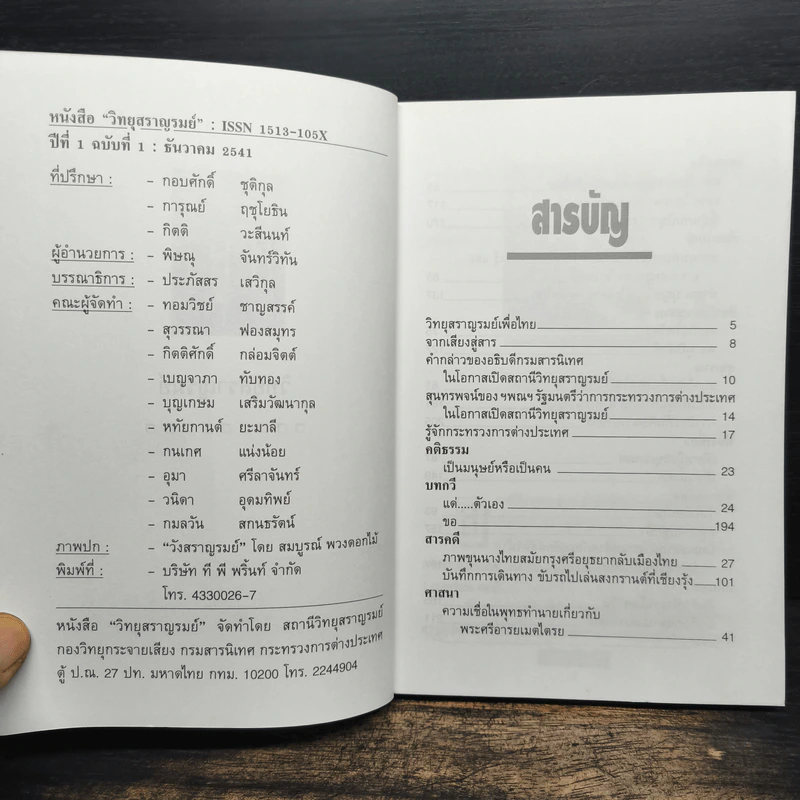 หนังสือ “วิทยุสราญรมย์” : ISSN 1513-105X
ปีที่ 1 ฉบับที่ 1 : ธันวาคม 2541
ที่ปรึกษา : – กอบศักดิ์ ชุติกุล
– การุณย์ ฤชุโยธิน
– กิตติ วะสีนนท์
ผู้อำนวยการ : – พิษณุ จันทร์วิทัน
บรรณาธิการ : – ประภัสสร เสวิกุล
คณะผู้จัดทำ : – ทอมวิชย์ ชาญสรรค์
– สุวรรณา ฟองสมุทร
– กิตติศักดิ์ กล่อมจิตต์
– เบญจาภา ทับทอง
– บุญเกษม เสริมวัฒนากุล
– หทัยกานต์ ยะมาลี
– กนเกศ แน่งน้อย
– อุมา ศรีลาจันทร์
– วนิดา อุดมทิพย์
– กมลวัน สกนธรัตน์
ภาพปก : – “วังสราญรมย์” โดย สมบูรณ์ พวงดอกไม้
พิมพ์ที่ : – บริษัท ที พี พริ้นท์ จำกัด
โทร. 4330026-7
หนังสือ “วิทยุสราญรมย์” จัดทำโดย สถานีวิทยุสราญรมย์
กองวิทยุกระจายเสียง กรมสารนิเทศ กระทรวงการต่างประเทศ
ตู้ ป.ณ. 27 ปท. มหาดไทย กทม. 10200 โทร. 2244904
สารบัญ
วิทยุสราญรมย์เพื่อไทย 5
จากเสียงสู่สาร 8
คำกล่าวของอธิบดีกรมสารนิเทศ
ในโอกาสเปิดสถานีวิทยุสราญรมย์ 10
สุนทรพจน์ของ ฯพณฯ รัฐมนตรีว่าการกระทรวงการต่างประเทศ
ในโอกาสเปิดสถานีวิทยุสราญรมย์ 14
รู้จักกระทรวงการต่างประเทศ 17
คติธรรม
เป็นมนุษย์หรือเป็นคน 23
บทกวี
แด่.....ตัวเอง 24
ขอ 194
สารคดี
ภาพขุนนางไทยสมัยกรุงศรีอยุธยากลับเมืองไทย 27
บันทึกการเดินทาง ขับรถไปเล่นสงกรานต์ที่เชียงรุ้ง 101
ศาสนา
ความเชื่อในพุทธทำนายเกี่ยวกับ
พระศรีอารยเมตไตรย 41